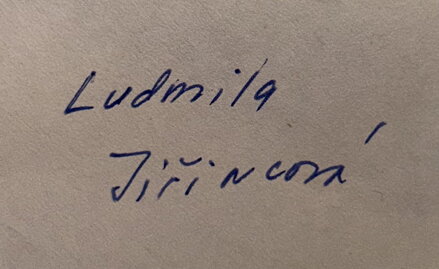 Ludmila
Jiřincová